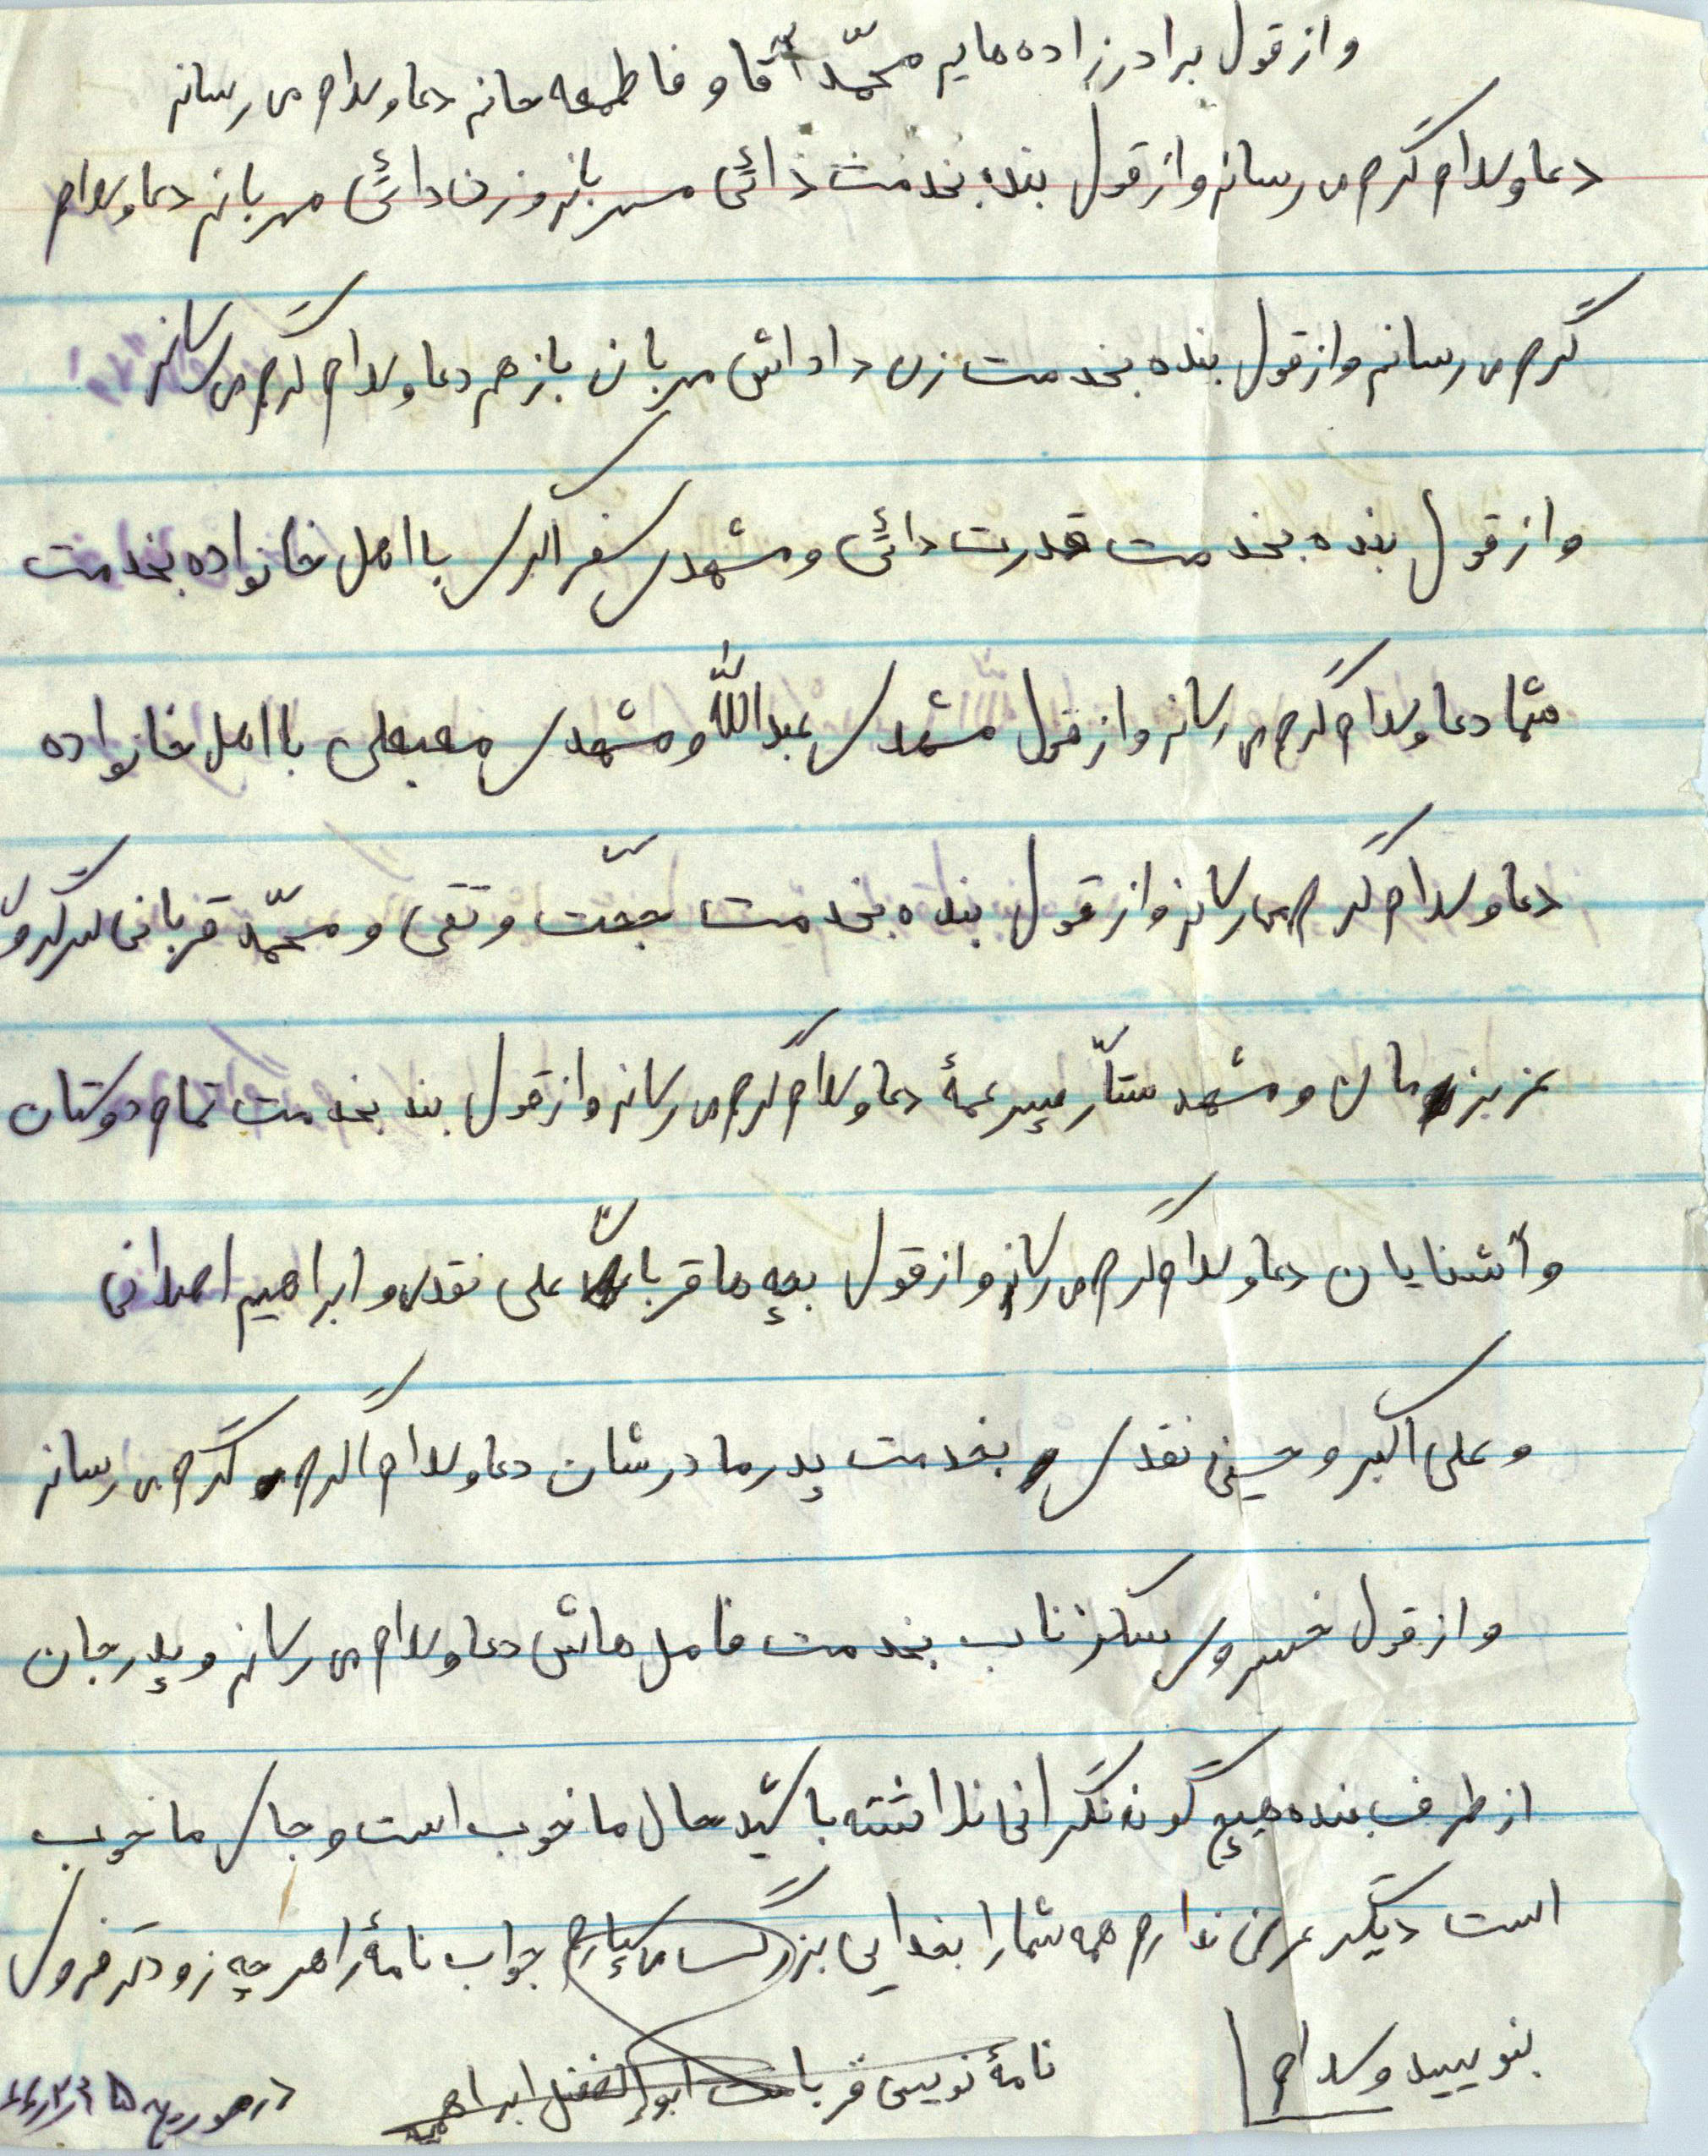 و از قول برادرزاده هایم محمّد آقا و فاطمعه خانم دعا و سلام می رسانم
دعا و سلام گرم می رسانم و از قول بنده بخدمت دائی مهربانم و زن دائی مهربانم دعا و سلام
گرم می رسانم و از قول بنده بخدمت زن داداش مهربان باز هم دعا و سلام گرم می رسانم
و از قول بنده بخدمت قدرت دائی و مشهدی سفر اکبری با اهل خانواده بخدمت
شما دعا و سلام گرم می رسانم و از قول مشهدی عبداللّه و مشهدی با اهل خانواده
دعا و سلام گرم می رسانم و از قول بنده بخدمت حجّت و تقی و محمّد قربانی
عزیزمان و مشهد ستّار پسر عمهٔ دعا و سلام گرم می رسانم و از قول بند بخدمت تمام دوستان
و آشنایان دعا و سلام گرم می رسانم و از قول بچه ها علی نقدی و ابراهیم اصلانی
و علی اکبر و حسین نقدی بخدمت پدر مادرشان دعا و سلام گرم گرم می رسانم
و از قول خسروی بخدمت فامل هاش دعا و سلام می رسانم و پدر جان
از طرف بنده هیچ گونه نگرانی نداشته باشید حال ما خوب است و جای ما خوب
است دیگر عرضی ندارم همه شما را بخدایی بزرگ می سپارم جواب نامهٔ را هر چه زودتر فروی
بنویسید و سلام
نامهٔ نویسی ابوالفضل ابراهیمی